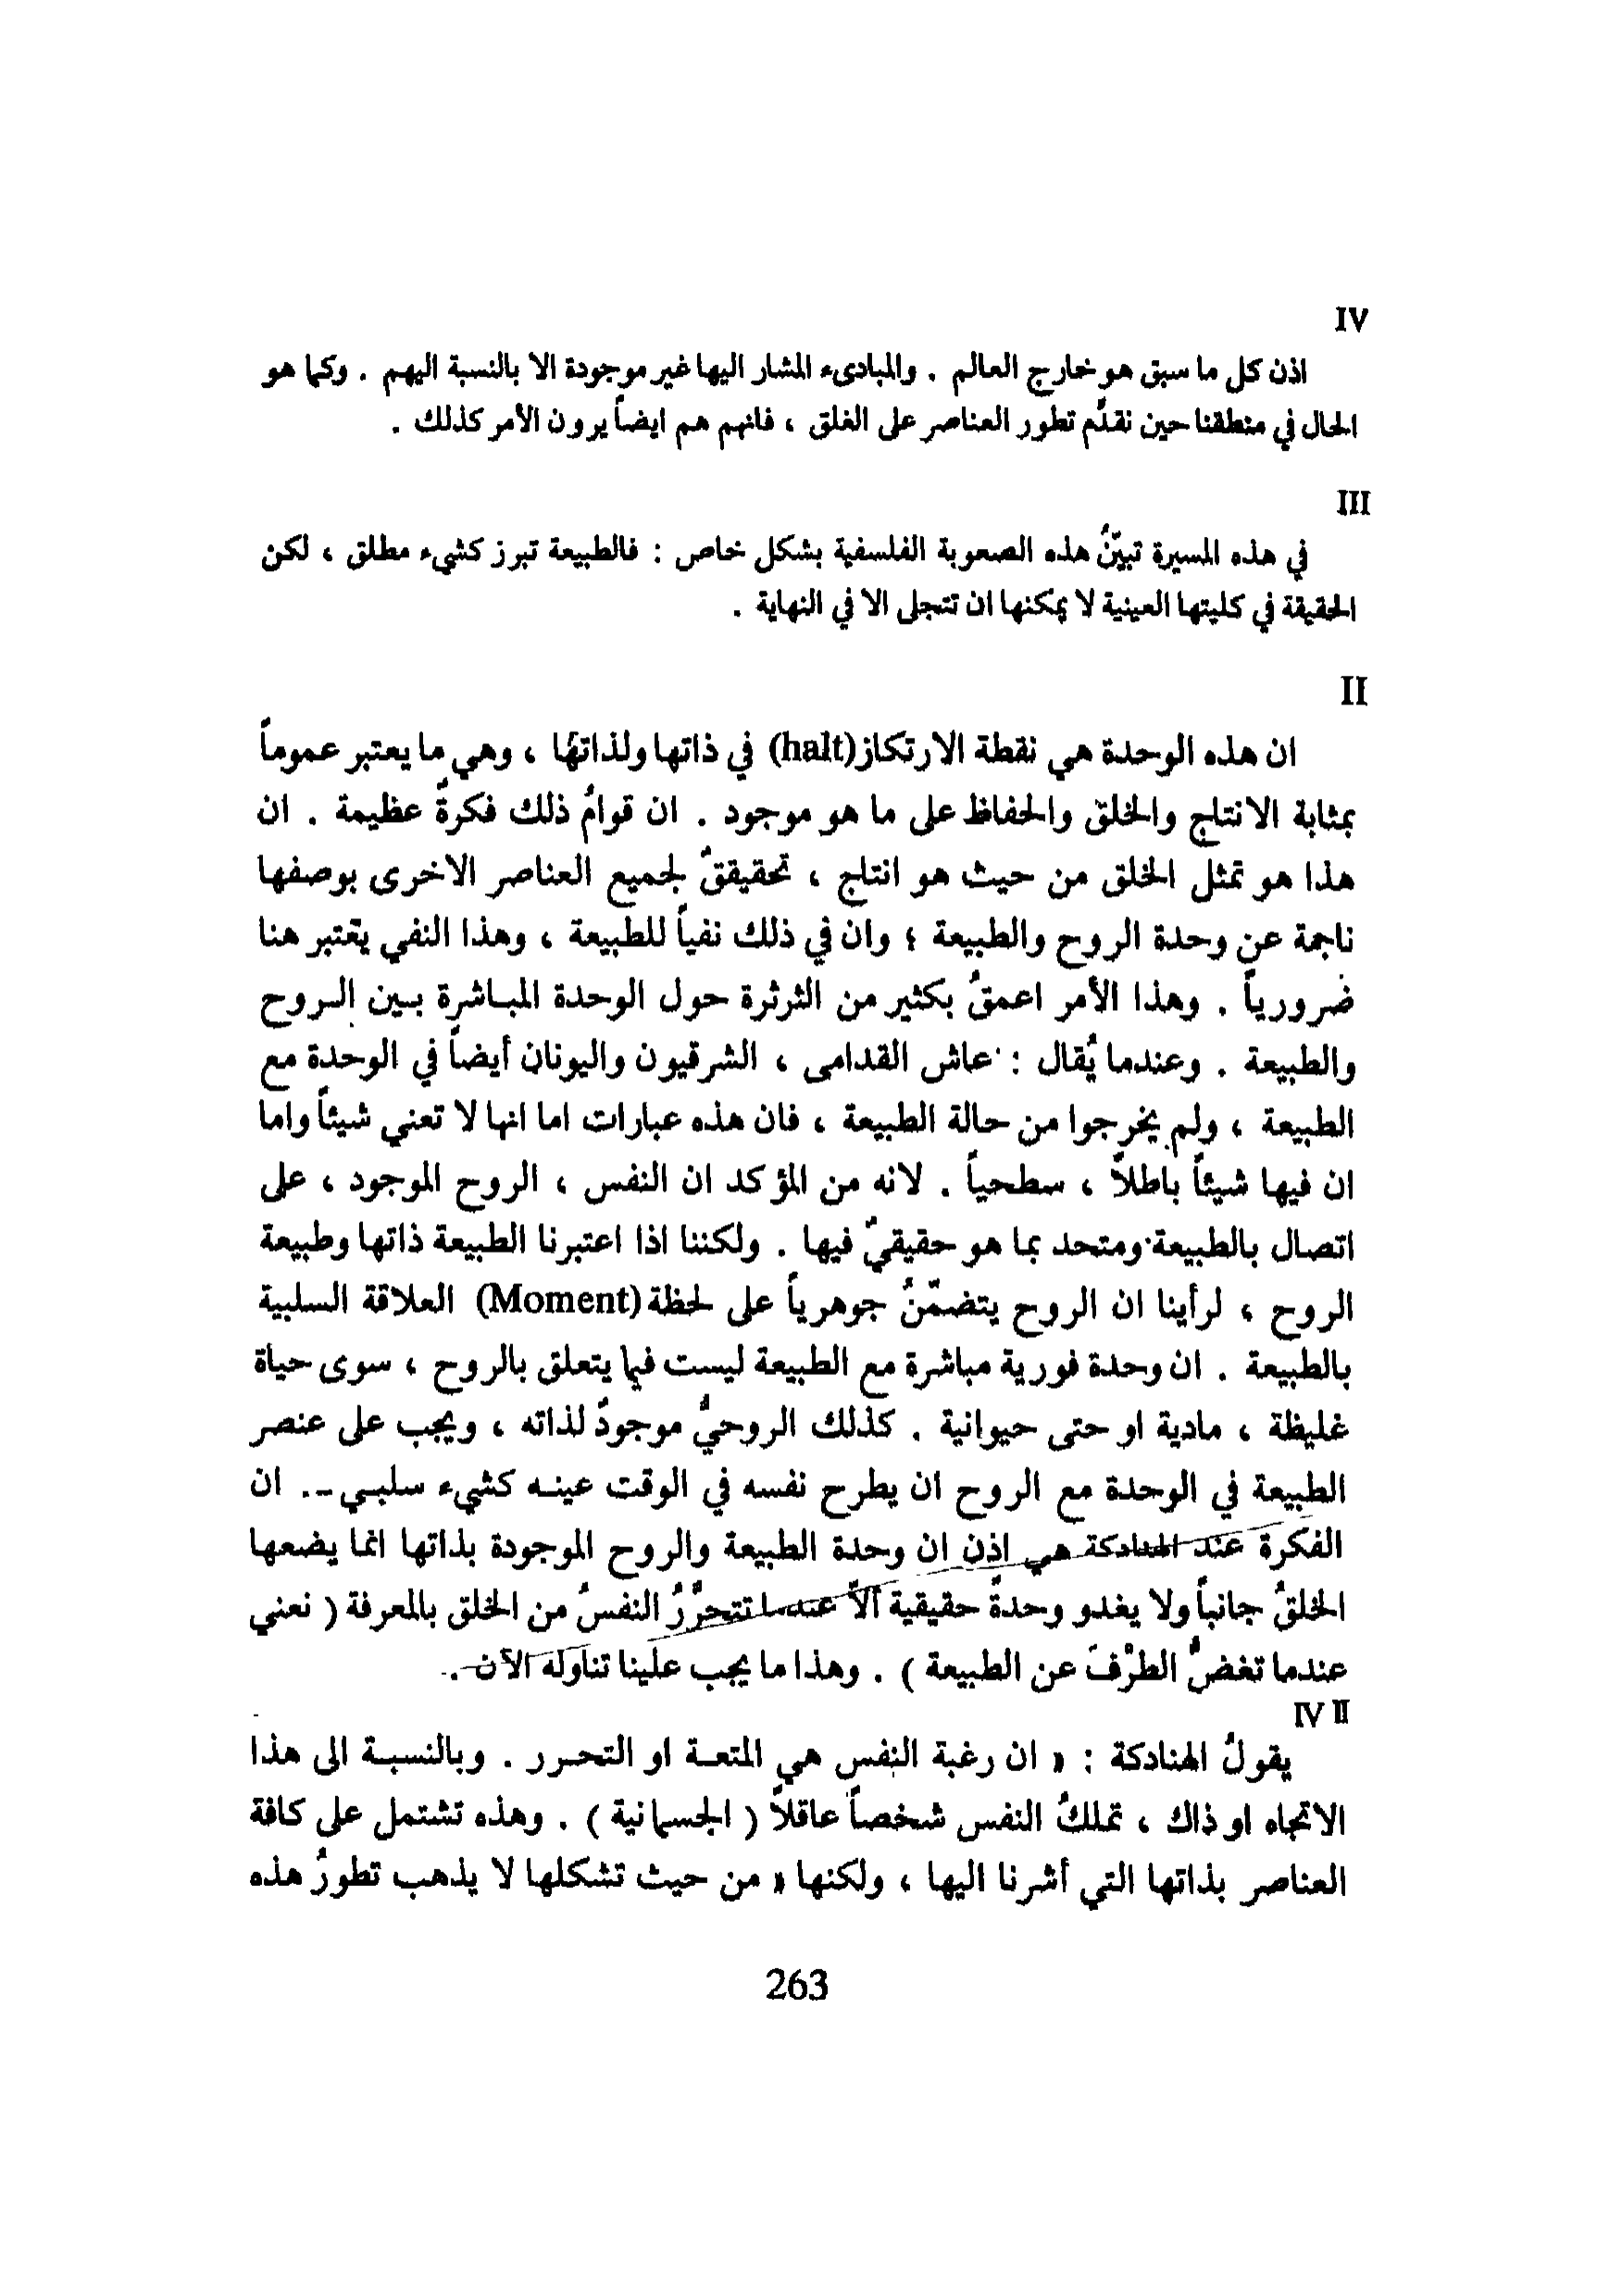 IV
اذن كل ما سبق هو خارج العالم . والمبادىء المشار اليها غير موجودة الا بالنسبة اليهم . وكما هو
الحال في منطقنا حين نقدّم تطور العناصر على الخلق ، فانهم هم ايضاً يرون الأمر كذلك .
III
في هذه المسيرة تبيّنُ هذه الصعوبة الفلسفية بشكل خاص : فالطبيعة تبرز كشيء مطلق ، لكن
الحقيقة في كليتها العينية لا يمكنها ان تتجلى الا في النهاية .
II
ان هذه الوحدة هي نقطة الارتكاز(halt) في ذاتها ولذاتها ، وهي ما يعتبر عموماً
بمثابة الانتاج والخلق والحفاظ على ما هو موجود . ان قوامُ ذلك فكرةٌ عظيمة . ان
هذا هو تمثل الخلق من حيث هو انتاج ، تحقيققٌ لجميع العناصر الاخرى بوصفها
ناجمة عن وحدة الروح والطبيعة ؛ وان في ذلك نفياً للطبيعة ، وهذا النفي يعتبر هنا
ضرورياً . وهذا الأمر اعمقُ بكثير من الثرثرة حول الوحدة المباشرة بين الروح
والطبيعة . وعندما يُقال : عاش القدامى ، الشرقيون واليونان أيضاً في الوحدة مع
الطبيعة ، ولم يخرجوا من حالة الطبيعة ، فان هذه عبارات اما انها لا تعني شيئاً واما
ان فيها شيئاً باطلاً ، سطحياً . لانه من المؤكد ان النفس ، الروح الموجود ، على
اتصال بالطبيعة ومتحد بما هو حقيقيٌ فيها . ولكننا اذا اعتبرنا الطبيعة ذاتها وطبيعة
الروح ، لرأينا ان الروح يتضمّنُ جوهرياً على لحظة (Moment) العلاقة السلبية
بالطبيعة . ان وحدة فورية مباشرة مع الطبيعة ليست فيما يتعلق بالروح ، سوى حياة
غليظة ، مادية او حتى حيوانية . كذلك الروحيُّ موجودٌ لذاته ، ويجب على عنصر
الطبيعة في الوحدة مع الروح ان يطرح نفسه في الوقت عينه كشيء سلبي -. ان
الفكرة عند الهنادكة هي إذن ان وحدة الطبيعة والروح الموجودة بذاتها انما يضعها
الخلقُ جانباً ولا يغدو وحدةً حقيقية الاّ عندما تتحرَّرُ النفسُ من الخلق بالمعرفة ( نعني
عندما تغضُّ الطرْفَ عن الطبيعة ) . وهذا ما يجب علينا تناوله الآن .
IV II
يقولُ الهنادكة : « ان رغبة النفس هي المتعة او التحرر . وبالنسبة الى هذا
الاتجاه او ذاك ، تملكُ النفس شخصاً عاقلاً ( الجسمانية ) . وهذه تشتمل على كافة
العناصر بذاتها التي أشرنا اليها ، ولكنها » من حيث تشكلها لا يذهب تطورُ هذه
263